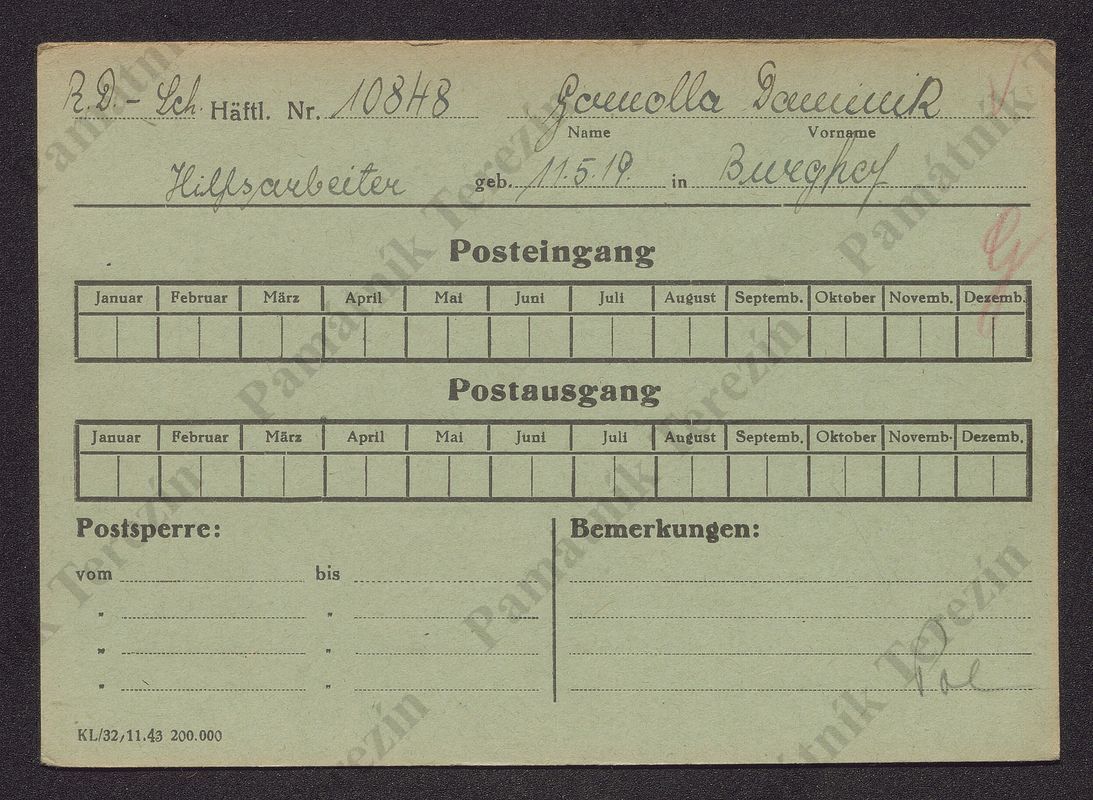 R.D. - Sch. Häftl. Nr. 10848 Gomolla Dominik
Name Vorname
Hilfsarbeiter geb. 11.5.19. in Burghof
Posteingang
Januar Februar März April Mai Juni Juli August Septemb. Oktober Novemb. Dezemb.
Postausgang
Januar Februar März April Mai Juni Juli August Septemb. Oktober Novemb. Dezemb.
Postsperre: Bemerkungen:
vom bis
" "
" "
" "
Pol
KL/32, 11.43 200.000
Památník Terezín